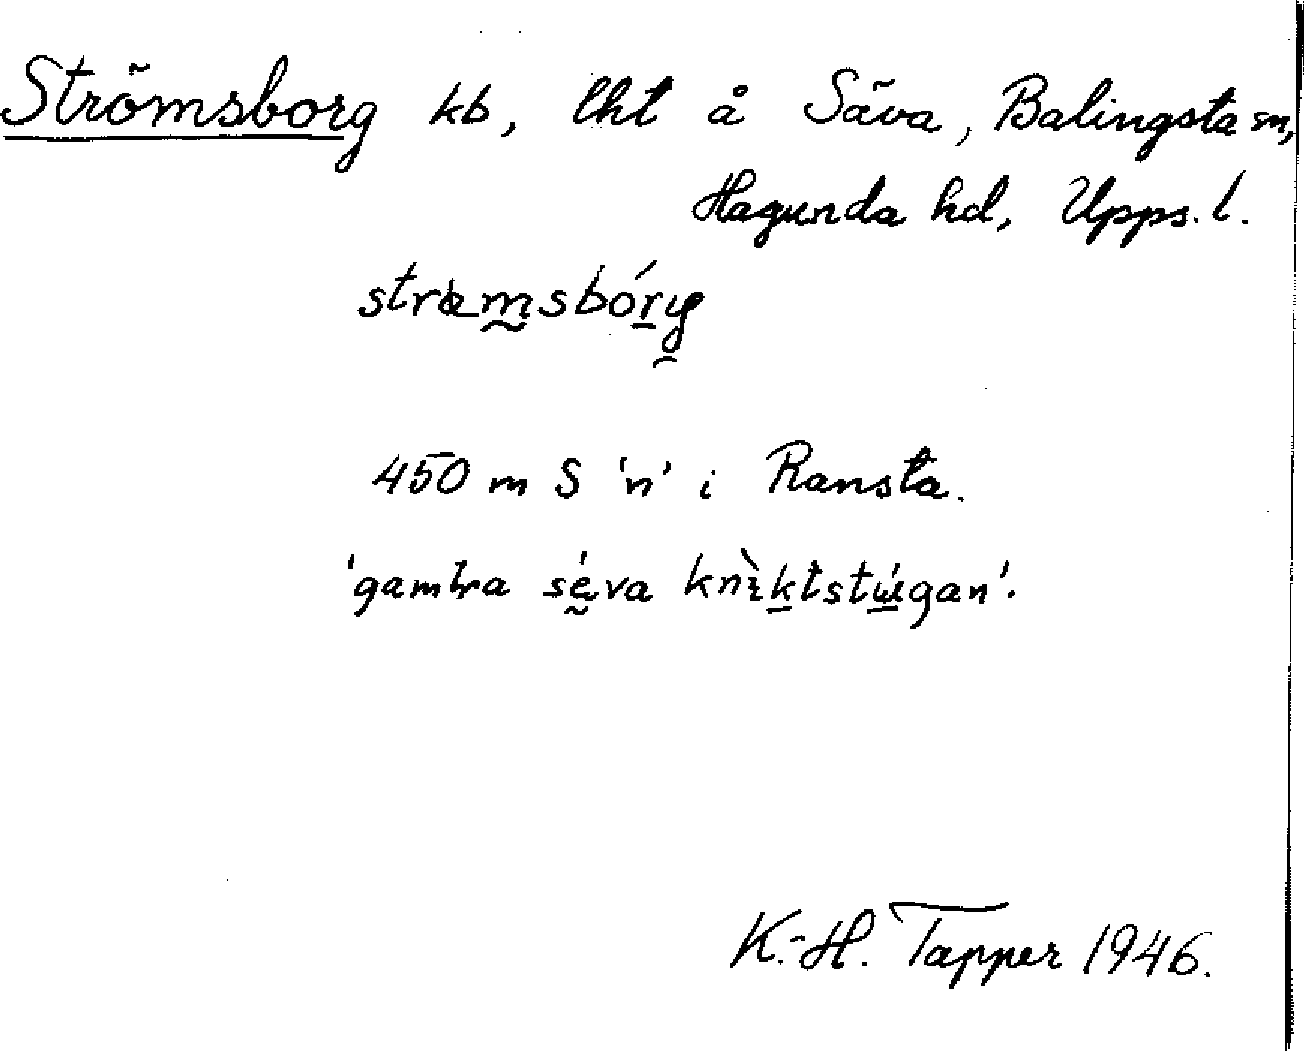 Strömsborg kb, lht å Säva, Balingsta sn,
Hagunda hd, Upps. l.
strœmsbórg
450 m S 'n' i Ransta.
'gamɫa séva knìktstúgan'.
K.-H. Tapper 1946.